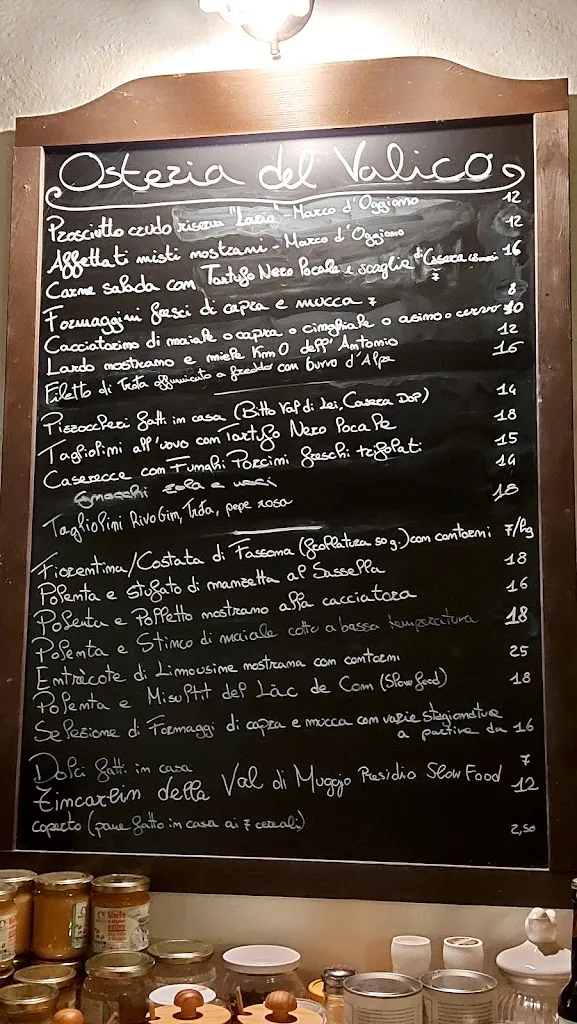 Osteria del Valico
Prosciutto crudo riserva "Lario" - Marco d'Oggiono 12
Affettati misti nostrani - Marco d'Oggiono 12
Carne salada con Tartufo Nero Locale e scaglie di Casera 16
Formaggini freschi di capra e mucca 7
Cacciatorino di maiale o capra o cinghiale o asino o cervo 8 10
Lardo nostrano e miele Km 0 dell'Antonio 12
Filetto di Trota affumicato a freddo con burro d'Alpe 16
Pizzoccheri fatti in casa (Bitto Val di Lei, Casera DOP) 14
Tagliolini all'uovo con Tartufo Nero Locale 18
Caserecce con Funghi Porcini freschi trifolati 15
Gnocchi zola e noci 14
Tagliolini RivoGin, Trota, pepe rosa 18
Fiorentina/Costata di Fassona (frollatura 50 g.) con contorni 7/hg
Polenta e stufato di manzetta al Sassella 18
Polenta e Polletto nostrano alla cacciatora 16
Polenta e Stinco di maiale cotto a bassa temperatura 18
Entrècote di Limousine nostrana con contorni 25
Polenta e Misultit del Làc de Com (Slow food) 18
Selezione di Formaggi di capra e mucca con varie stagionature
a partire da 16
Dolci fatti in casa 7
Zincarlin della Val di Muggio Presidio Slow Food 12
coperto (pane fatto in casa ai 7 cereali) 2,50
Miele